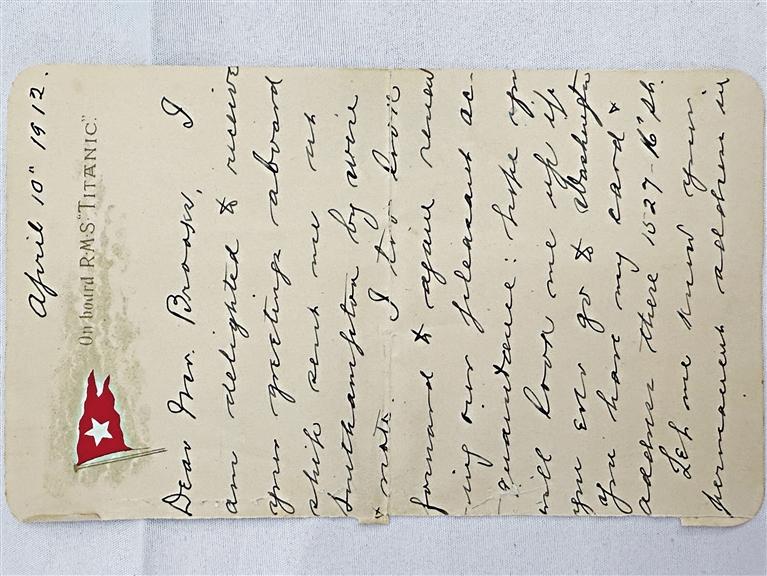 April 10" 1912.
On board R·M·S "TITANIC."
Dear Mr. Brooks, I
am delighted to receive
your greetings aboard
ship sent me at
Southampton by wire
& note. I too look
forward to again renew
-ing our pleasant ac-
-quaintance: hope you
will look me up if
you ever go to Washington
You have my card &
address there 1527-16" St.
Let me know your
permanent address in